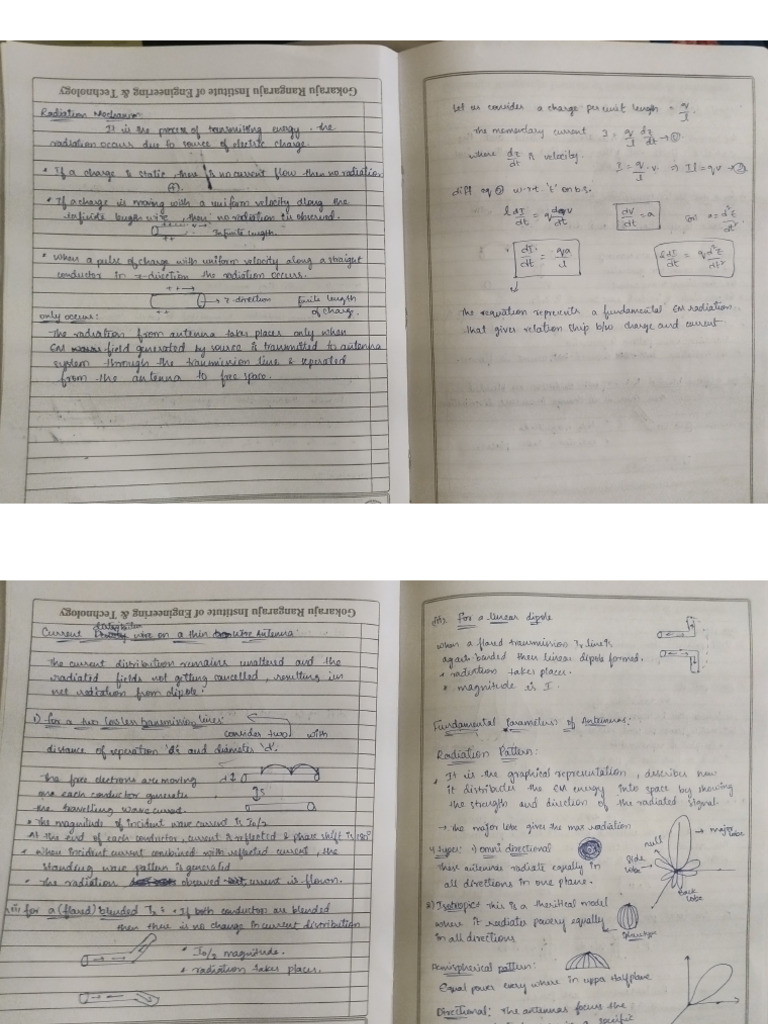 Gokaraju Rangaraju Institute of Engineering & Technology
Radiation Mechanism:
It is the process of transmitting energy. the
radiation occurs due to source of electric charge.
• If a charge is static there is no current flow then no radiation
(+).
• If a charge is moving with a uniform velocity along the
infinite length wire, then no radiation is observed.
Infinite length.
• When a pulse of charge with uniform velocity along a straight
conductor in z-direction the radiation occurs.
z-direction finite length
of charge.
only occurs:
The radiation from antenna takes places only when
EM field generated by source is transmitted to antenna
system through the transmission line & seperated
from the antenna to free space.
Let us consider a charge per unit length = q/l
The momentary current I = q/l dz/dt → ①
where dz/dt is velocity.
I = q/l . v. ⇒ Il = qv → ②
diff eq ② w.r.t 't' on b.s.
l dI/dt = q dv/dt
dv/dt = a
(or) a = d²z/dt²
dI/dt = qa/l
l dI/dt = q d²z/dt²
The equation represents a fundamental EM radiation
that gives relation ship b/w charge and current
Gokaraju Rangaraju Institute of Engineering & Technology
Current distribution on a thin wire Antenna:
The current distribution remains unaltered and the
radiated fields not getting cancelled, resulting in
net radiation from dipole.
i) for a two transmission lines:
consider two with
distance of seperation and diameter 'd'.
The free electrons are moving
on each conductor generate
the travelling wave
• The magnitude of incident wave current is I0/2
At the end of each conductor, current is reflected & phase shift is 180°
• When incident current combined with reflected current, the
standing wave pattern is generated
• The radiation observed current is flown.
ii) for a (flared) blended • If both conductor are blended
then there is no change in current distribution
• I0/2 magnitude.
• radiation takes places.
for a linear dipole
when a flared transmission line is
again bended then linear dipole formed.
• radiation takes places.
• magnitude is I.
Fundamental Parameters of Antennas:
Radiation Pattern:
• It is the graphical representation, describes how
it distributes the EM energy into space by showing
the strength and direction of the radiated signal.
→ The major lobe gives the max radiation
major lobe
null
Side lobe
Back lobe
Types: 1) omni directional
These antennas radiate equally in
all directions in one plane.
2) Isotropic: This is a theritical model
where it radiates powery equally
in all directions
Hemispherical pattern:
Equal power every where in uppa Halfplane
Directional: The antennas focus the
in a specific